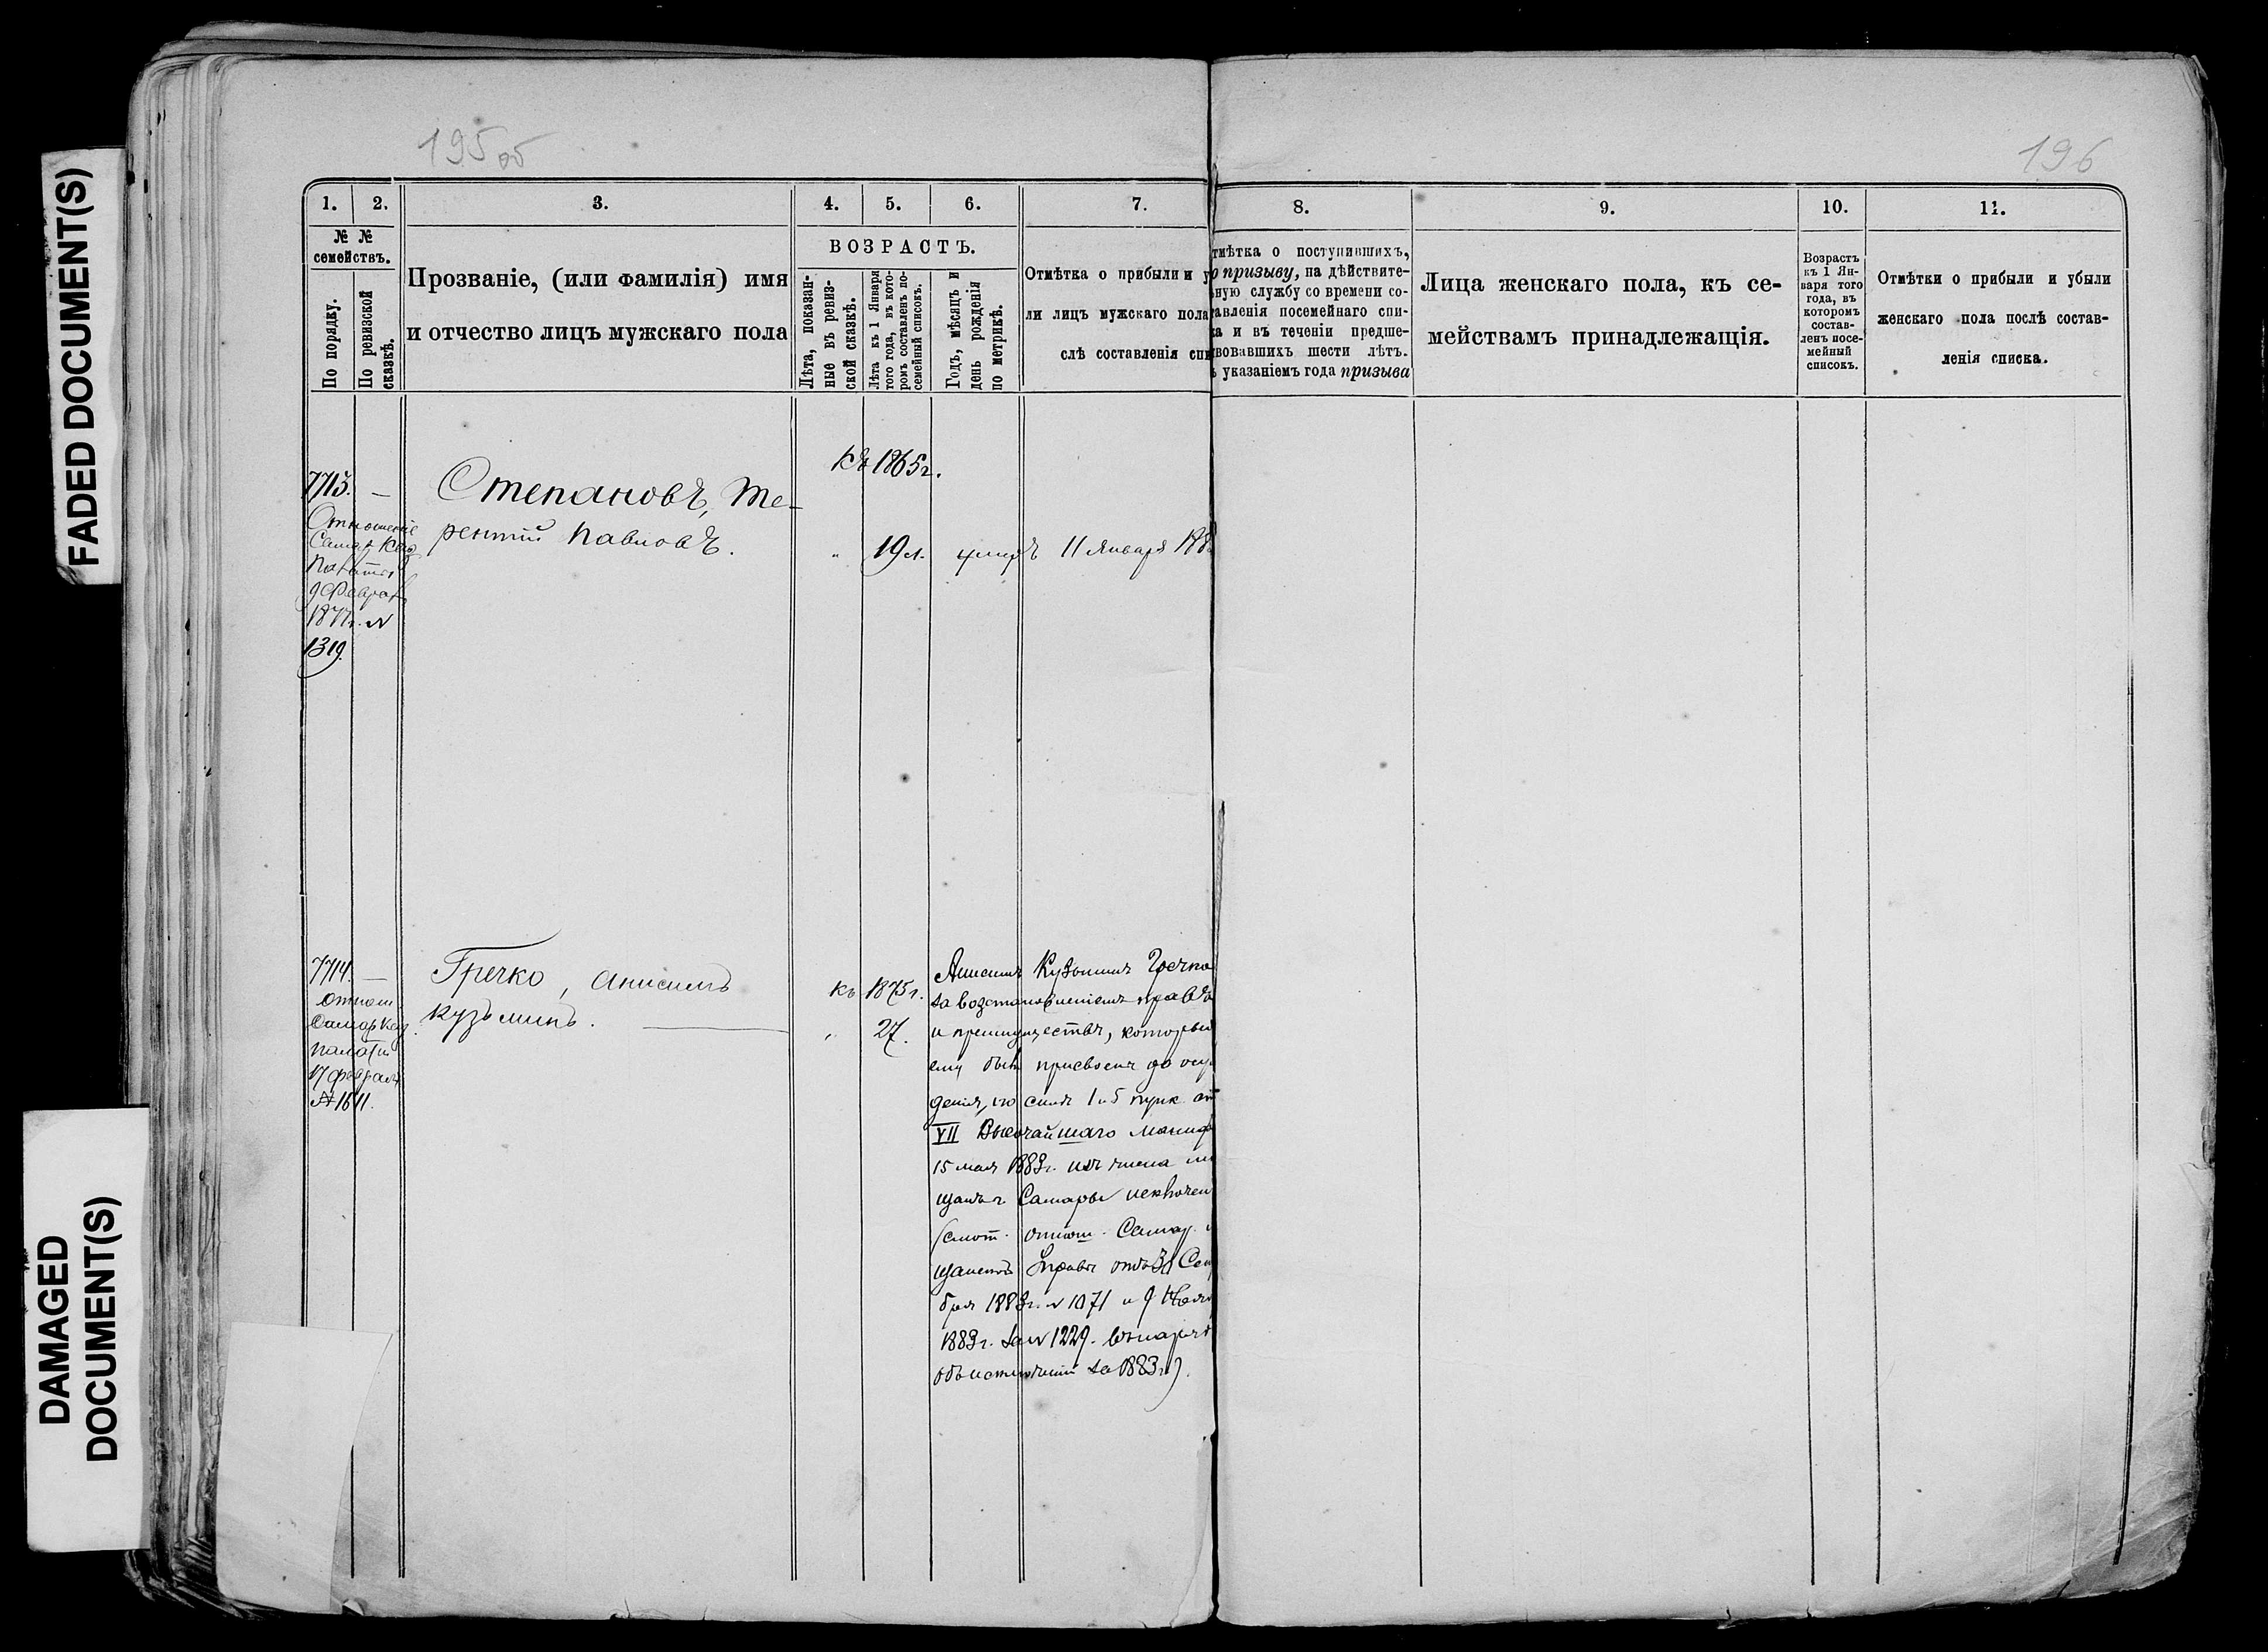 FADED DOCUMENT(S)
DAMAGED
DOCUMENT(S)
195 об
196
1.
2.
3.
4.
5.
6.
7.
8.
9.
10.
11.
№ №
семействъ.
По порядку.
По ревизской
сказкѣ.
Прозваніе, (или фамилія) имя
и отчество лицъ мужскаго пола
ВОЗРАСТЪ.
Лѣта, показан-
ные въ ревиз-
ской сказкѣ.
Лѣта къ 1 Января
того года, въ кото-
ромъ составленъ по-
семейный списокъ.
Годъ, мѣсяцъ и
день рожденія
по метрикѣ.
Отмѣтка о прибыли и у
ли лицъ мужскаго пола
слѣ составленія спи
тмѣтка о поступившихъ,
о призыву, на дѣйствите-
ную службу со времени со-
тавленія посемейнаго спи-
ка и въ теченіи предше-
твовавшихъ шести лѣтъ.
указаніемъ года призыва
Лица женскаго пола, къ се-
мействамъ принадлежащія.
Возрастъ
къ 1 Ян-
варя того
года, въ
которомъ
состав-
ленъ посе-
мейный
списокъ.
Отмѣтки о прибыли и убыли
женскаго пола послѣ состав-
ленія списка.
къ 1865 г.
7713. —
Степановъ, Те-
рентій Павловъ.
" 19 л. умеръ 11 Января 188
Отношеніе
Самар Каз
Палаты
9 Феврал
1877 г. №
1319.
7714. —
Гречко, Анисимъ
Кузьминъ.
къ 1875 г.
" 27.
отнош
Самар Каз.
Палаты
17 февраля
№ 1611.
Анисимъ Кузьминъ Гречко
за возстановленіемъ правъ
и преимуществъ, которыя
ему были присвоены до осу
денія, по силѣ 1 и 5 пунк. ст
VII Высочайшаго Маниф
15 мая 1883 г. изъ числа мѣ
щанъ г. Самары исключен
(смот. отнош. Самар.
щанской Управы отъ Сен
бря 1883 г. № 1071 и 9 Ноя
1883 г. за № 1229. въ нарядѣ
объ исключеніи за 1883 г.).